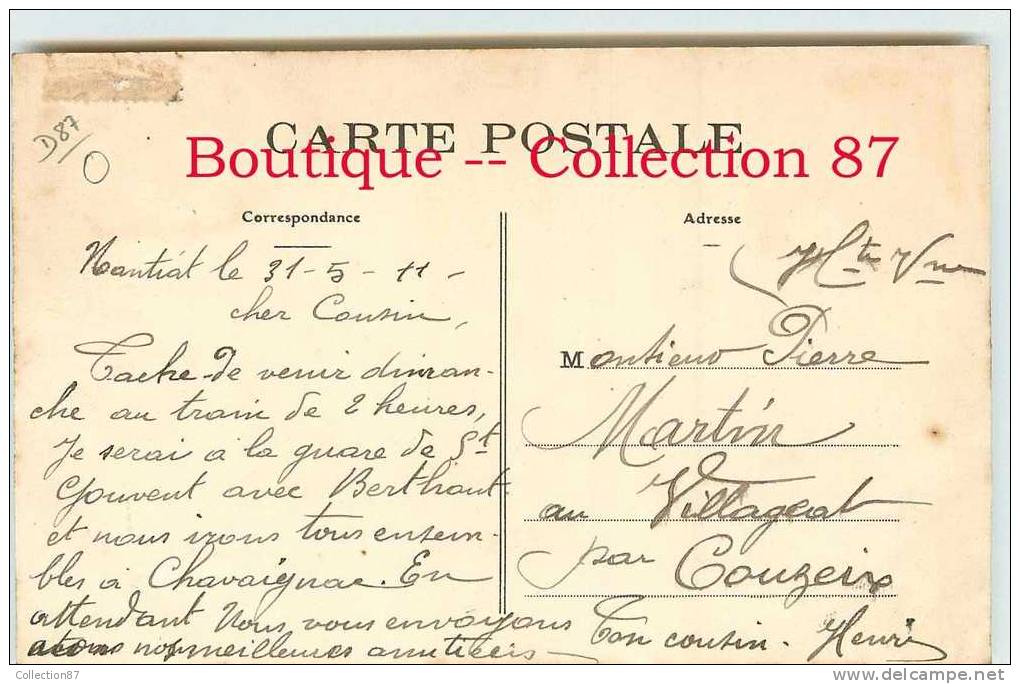 D87
CARTE POSTALE
Boutique -- Collection 87
Correspondance
Nantiat le 31-5-11-
cher Cousin,
Tache de venir diman-
che au train de 2 heures,
Je serai a la guare de St
Jouvent avec Berthout
et nous irons tous ensem-
bles a Chavaignac. En
attendant Nous vous envoyons
nos meilleures amitiées
Adresse
Hte Vne
Monsieur Pierre
Martin
au Villageat
par Couzeix
Ton cousin. Henri
Collection87
www.delcampe.net